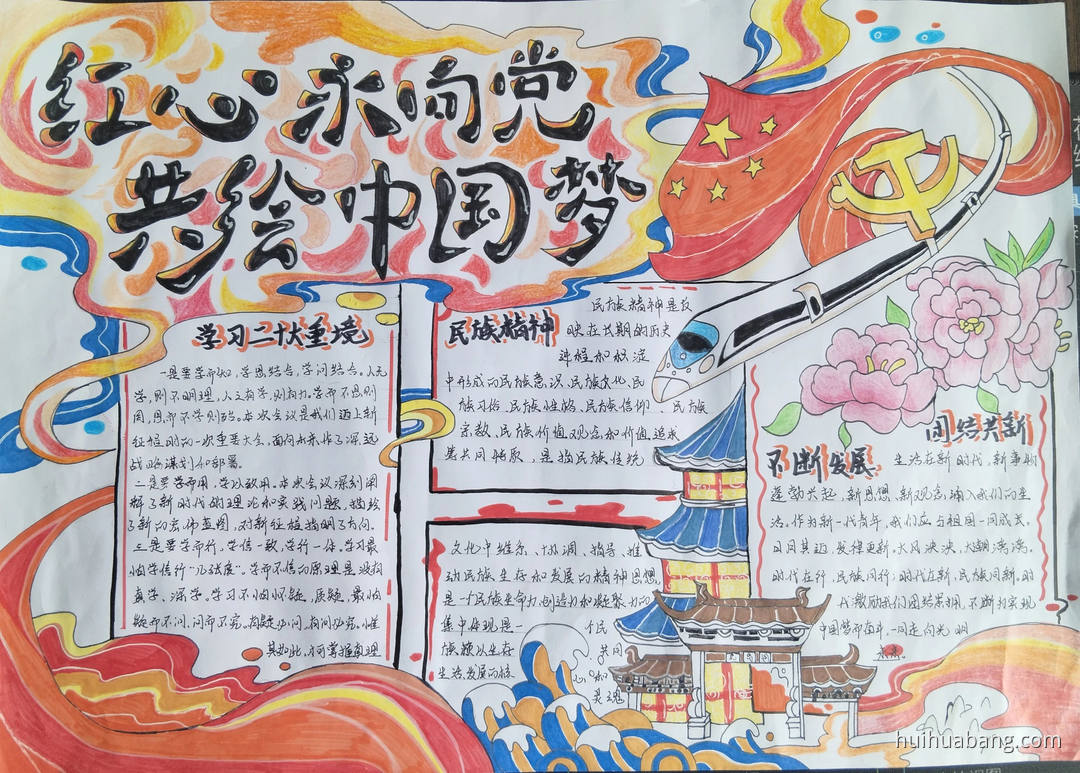 红心永向党
共绘中国梦
学习二十大重境
一是要学而知，学思结合，学问结合。人无
学，则不明理，人立有学，则有力。学而不思则
罔，思而不学则殆。本次会议是我们迈上新
征程时的一次重要大会，面向未来，作了深远
战略谋划和部署。
二是要学而用，学以致用。本次会议深刻阐
释了新时代的理论和实践问题，描绘
了新的宏伟蓝图，对新征程指明了方向。
三是要学而行，学信一致，学行一体。学习最
怕学信行“几张皮”。学而不信的原理是没有
真学、深学。学习不怕怀疑、质疑，最怕
疑而不问，问而不究。有疑必问，有问必究。惟
其如此，才可掌握真理
民族精神
民族精神是反
映在长期的历史
进程和积淀
中形成的民族意识、民族文化、民
族习俗、民族性格、民族信仰、民族
宗教，民族价值观念和价值追求
等共同特质，是指民族传统
文化中维系、协调、指导、推
动民族生存和发展的精神思想，
是一个民族生命力、创造力和凝聚力的
集中体现是一个民
族赖以生存共同
生活、发展的核心和
灵魂
团结共新
不断发展
生活在新时代，新事物
蓬勃兴起，新思想、新观念涌入我们的生
活。作为新一代青年，我们应与祖国一同成长。
日同其迈，发律更新。大风泱泱，大潮滂滂。
时代在行，民族同行；时代在新，民族同新。时
代激励我们团结果拥，不断为实现
中国梦而奋斗，一同走向光明
未来。
huihuabang.com